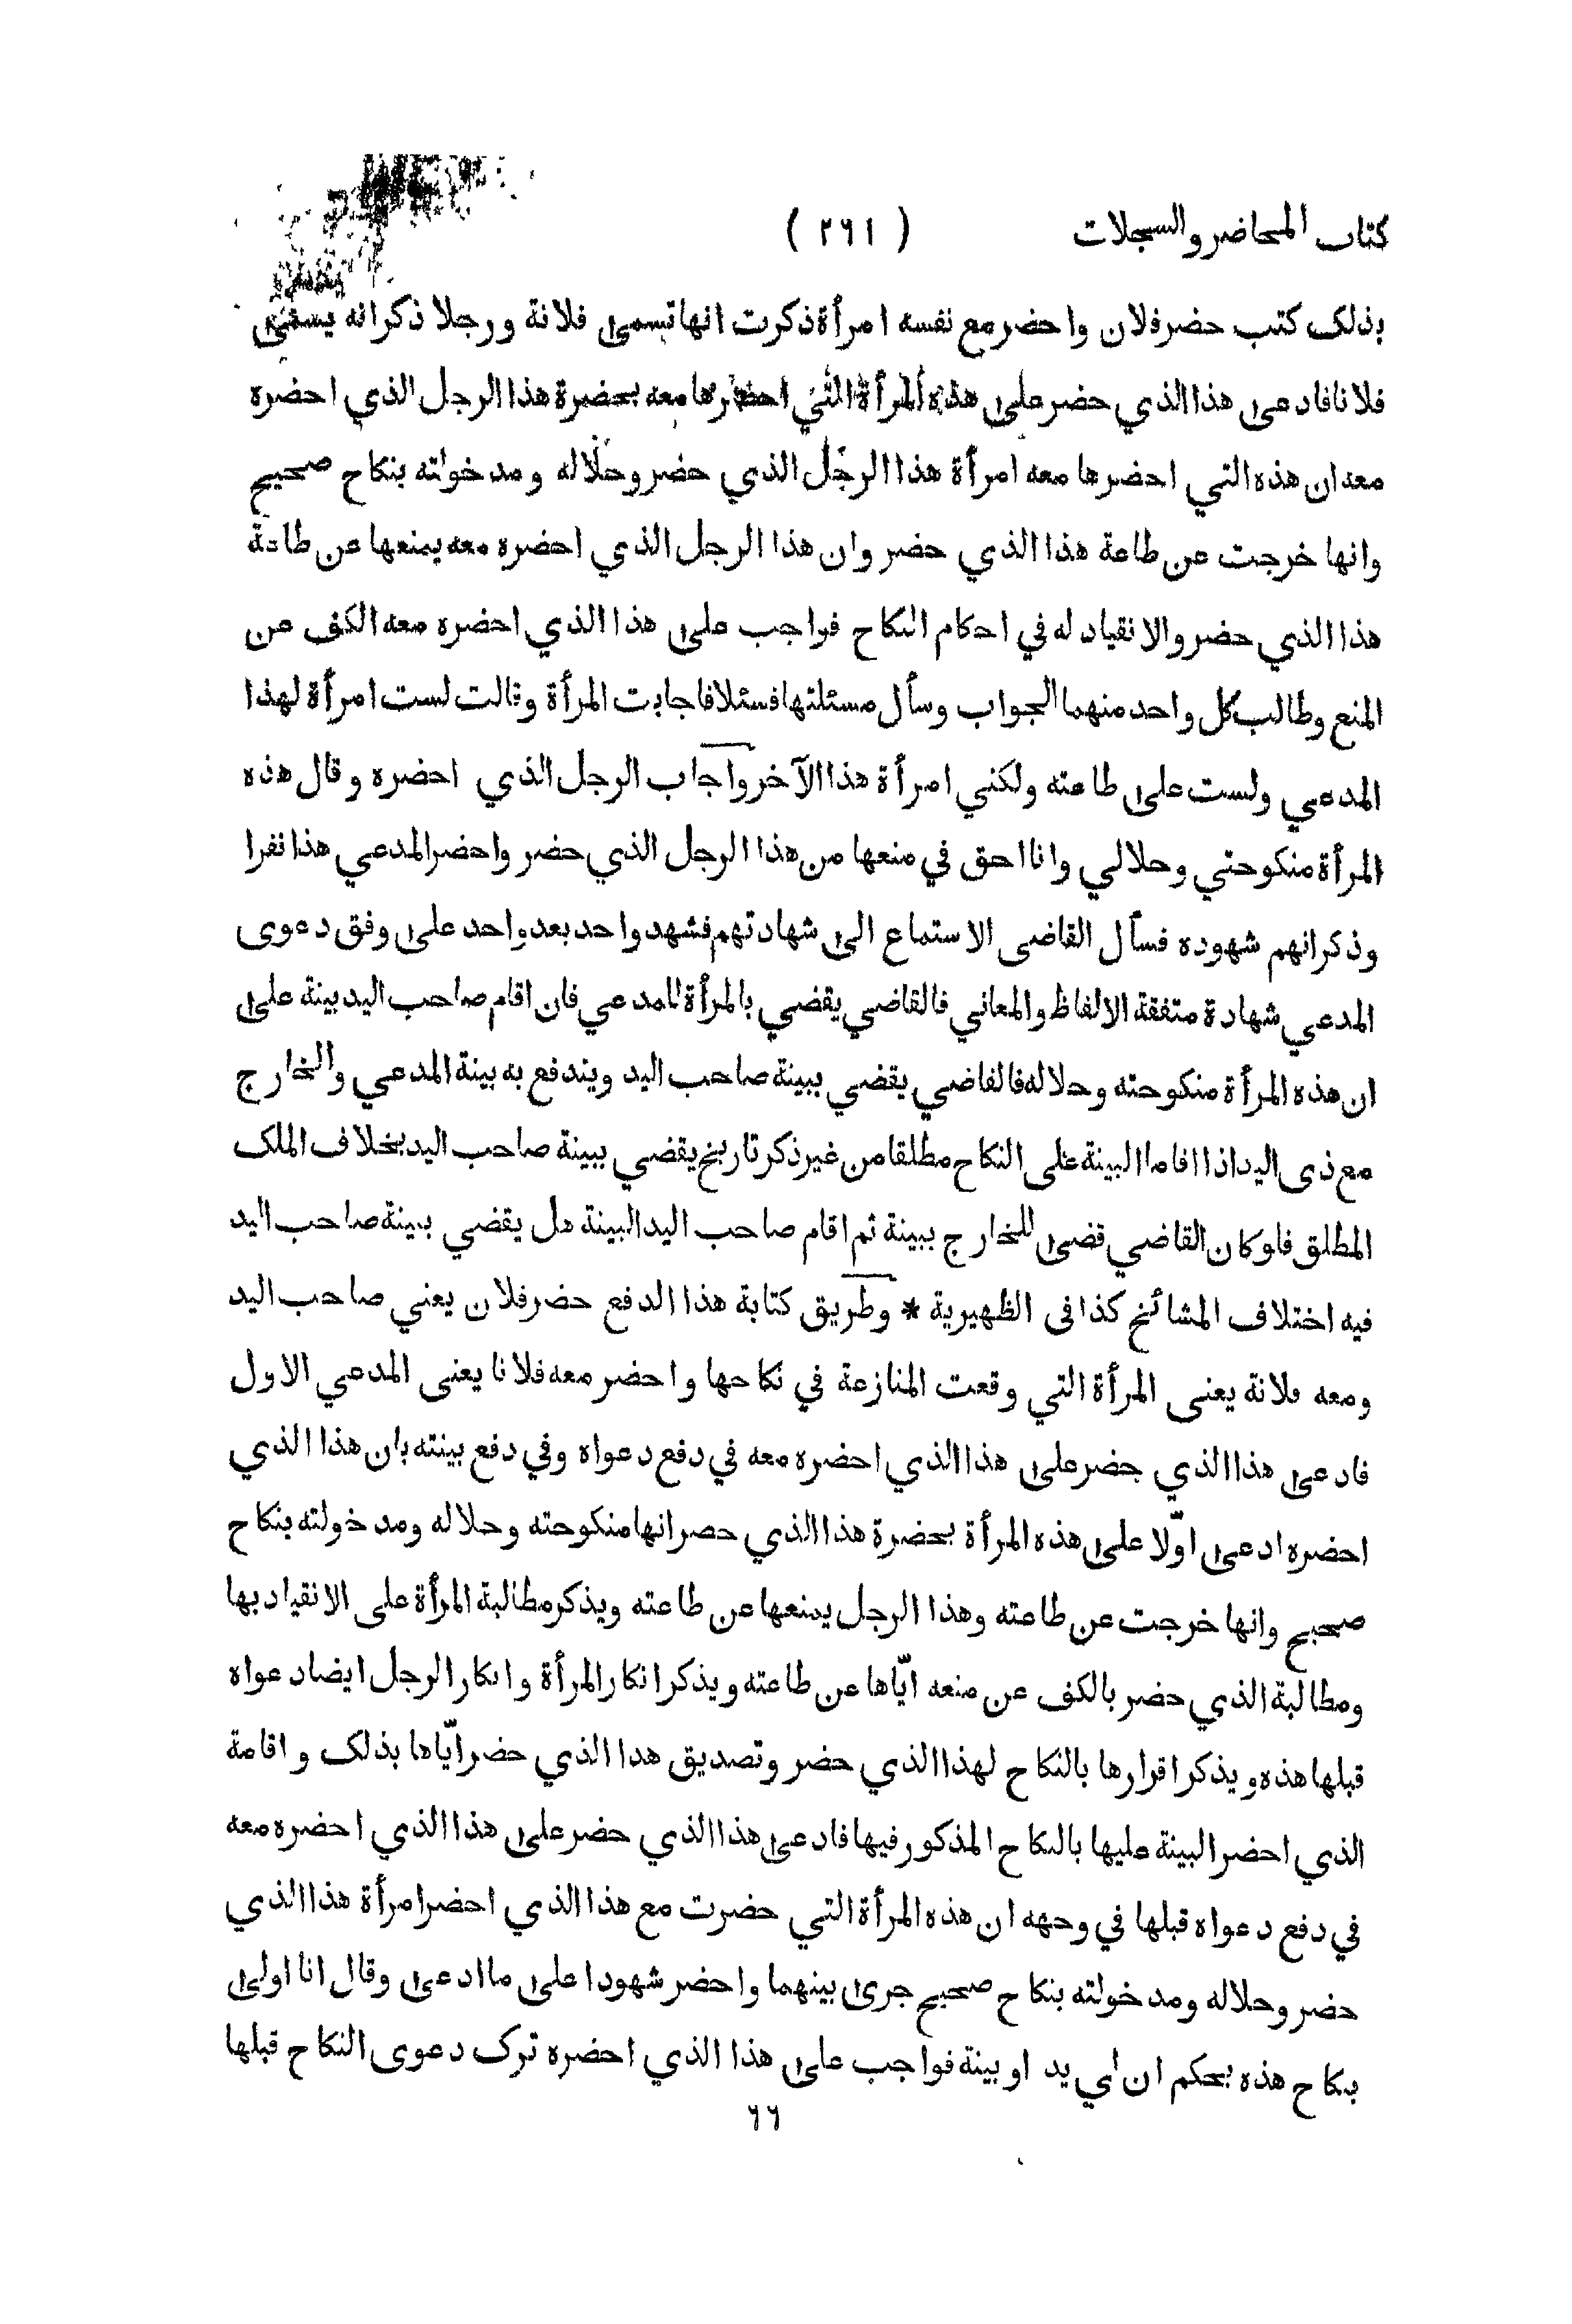 كتاب المحاضر والسجلات ( ٢٦١ )
بذلك كتب حضر فلان واحضر مع نفسه امرأة ذكرت انها تسمى فلانة ورجلا ذكر انه يسمى
فلانا فادعى هذا الذي حضر على هذه المرأة التي احضرها معه بحضرة هذا الرجل الذي احضره
معه ان هذه التي احضرها معه امرأة هذا الرجل الذي حضر وحلاله ومدخولته بنكاح صحيح
وانها خرجت عن طاعة هذا الذي حضر وان هذا الرجل الذي احضره معه يمنعها عن طاعة
هذا الذي حضر والانقياد له في احكام النكاح فواجب على هذا الذي احضره معه الكف عن
المنع وطالب كل واحد منهما الجواب وسأل مسئلتها فسئلا فاجابت المرأة وقالت لست امرأة لهذا
المدعي ولست على طاعته ولكني امرأة هذا الآخر واجاب الرجل الذي احضره وقال هذه
المرأة منكوحتي وحلالي وانا احق في منعها من هذا الرجل الذي حضر واحضر المدعي هذا نفرا
وذكر انهم شهوده فسأل القاضى الاستماع الى شهادتهم فشهد واحد بعد واحد على وفق دعوى
المدعي شهادة متفقة الالفاظ والمعاني فالقاضي يقضي بالمرأة للمدعي فان اقام صاحب اليد بينة على
ان هذه المرأة منكوحته وحلاله فالقاضي يقضي ببينة صاحب اليد ويندفع به بينة المدعي والخارج
مع ذى اليد اذا اقاما البينة على النكاح مطلقا من غير ذكر تاريخ يقضي ببينة صاحب اليد بخلاف الملك
المطلق فلو كان القاضي قضى للخارج ببينة ثم اقام صاحب اليد البينة هل يقضي ببينة صاحب اليد
فيه اختلاف المشائخ كذا فى الظهيرية * وطريق كتابة هذا الدفع حضر فلان يعني صاحب اليد
ومعه فلانة يعنى المرأة التي وقعت المنازعة في نكاحها واحضر معه فلانا يعنى المدعي الاول
فادعى هذا الذي حضر على هذا الذي احضره معه في دفع دعواه وفي دفع بينته بان هذا الذي
احضره ادعى اوّلا على هذه المرأة بحضرة هذا الذي حضر انها منكوحته وحلاله ومدخولته بنكاح
صحيح وانها خرجت عن طاعته وهذا الرجل يمنعها عن طاعته ويذكر مطالبة المرأة على الانقياد بها
ومطالبة الذي حضر بالكف عن منعه ايّاها عن طاعته ويذكر انكار المرأة وانكار الرجل ايضا دعواه
قبلها هذه ويذكر اقرارها بالنكاح لهذا الذي حضر وتصديق هذا الذي حضر ايّاها بذلك واقامة
الذي احضر البينة عليها بالنكاح المذكور فيها فادعى هذا الذي حضر على هذا الذي احضره معه
في دفع دعواه قبلها في وجهه ان هذه المرأة التي حضرت مع هذا الذي احضر امرأة هذا الذي
حضر وحلاله ومدخولته بنكاح صحيح جرى بينهما واحضر شهودا على ما ادعى وقال انا اولى
بنكاح هذه بحكم ان لي يد او بينة فواجب على هذا الذي احضره ترك دعوى النكاح قبلها
٦٦